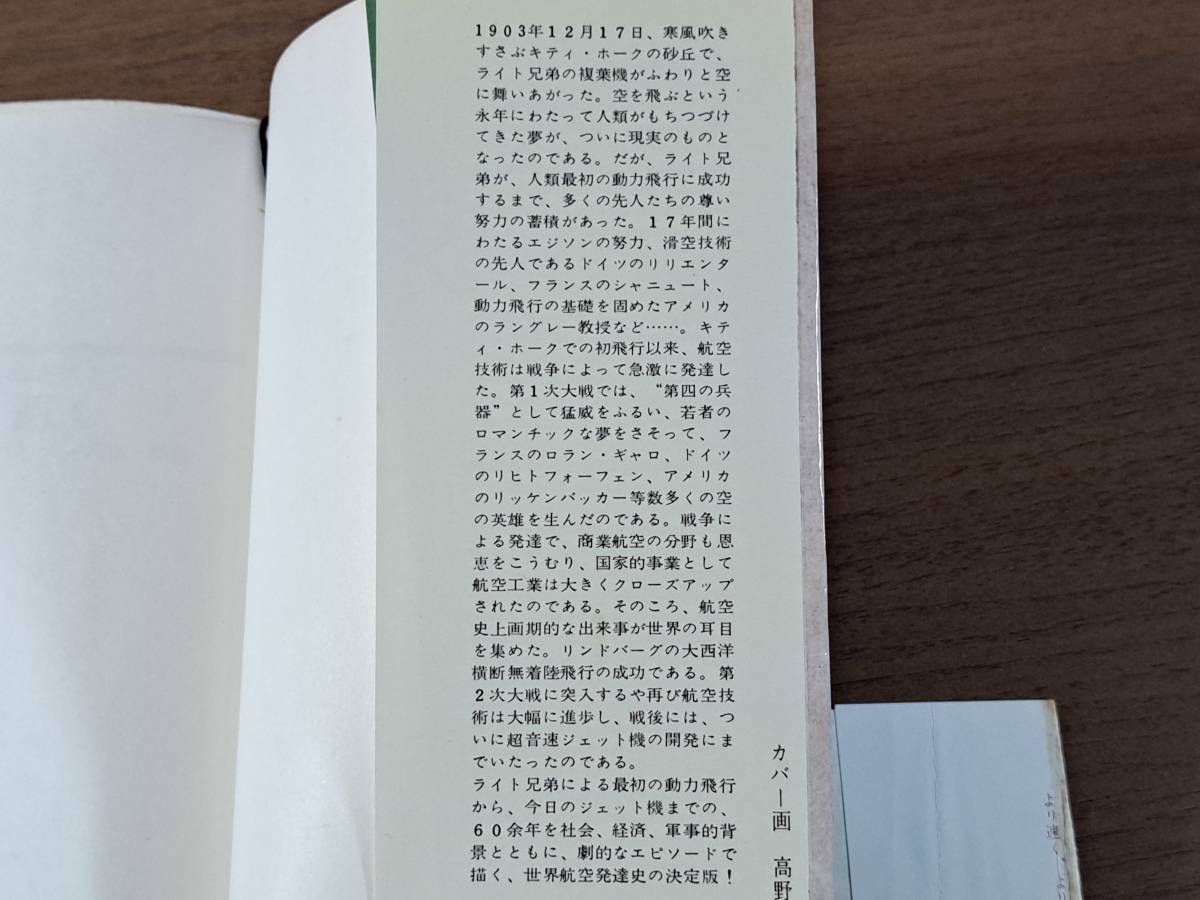 1903年12月17日、寒風吹き
すさぶキティ・ホークの砂丘で、
ライト兄弟の複葉機がふわりと空
に舞いあがった。空を飛ぶという
永年にわたって人類がもちつづけ
てきた夢が、ついに現実のものと
なったのである。だが、ライト兄
弟が、人類最初の動力飛行に成功
するまで、多くの先人たちの尊い
努力の蓄積があった。17年間に
わたるエジソンの努力、滑空技術
の先人であるドイツのリリエンタ
ール、フランスのシャニュート、
動力飛行の基礎を固めたアメリカ
のラングレー教授など……。キテ
ィ・ホークでの初飛行以来、航空
技術は戦争によって急激に発達し
た。第1次大戦では、“第四の兵
器”として猛威をふるい、若者の
ロマンチックな夢をさそって、フ
ランスのロラン・ギャロ、ドイツ
のリヒトフォーフェン、アメリカ
のリッケンバッカー等数多くの空
の英雄を生んだのである。戦争に
よる発達で、商業航空の分野も恩
恵をこうむり、国家的事業として
航空工業は大きくクローズアップ
されたのである。そのころ、航空
史上画期的な出来事が世界の耳目
を集めた。リンドバーグの大西洋
横断無着陸飛行の成功である。第
2次大戦に突入するや再び航空技
術は大幅に進歩し、戦後には、つ
いに超音速ジェット機の開発にま
でいたったのである。
ライト兄弟による最初の動力飛行
から、今日のジェット機までの、
60余年を社会、経済、軍事的背
景とともに、劇的なエピソードで
描く、世界航空発達史の決定版！
カバー画 高野
より速く